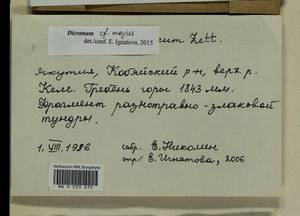 Dicranum cf. majus
det./conf. E. Ignatova, 2015
Zett.
Якутия, Кобяйский р-н, верх. р.
Келе. Гребень горы 1843 м.
Фрагмент разнотравно-злаковой
тундры.
1. VIII. 1986 собр. Е. Николин
опр. Е. Игнатова, 2006
Herbarium MW, Bryophytes